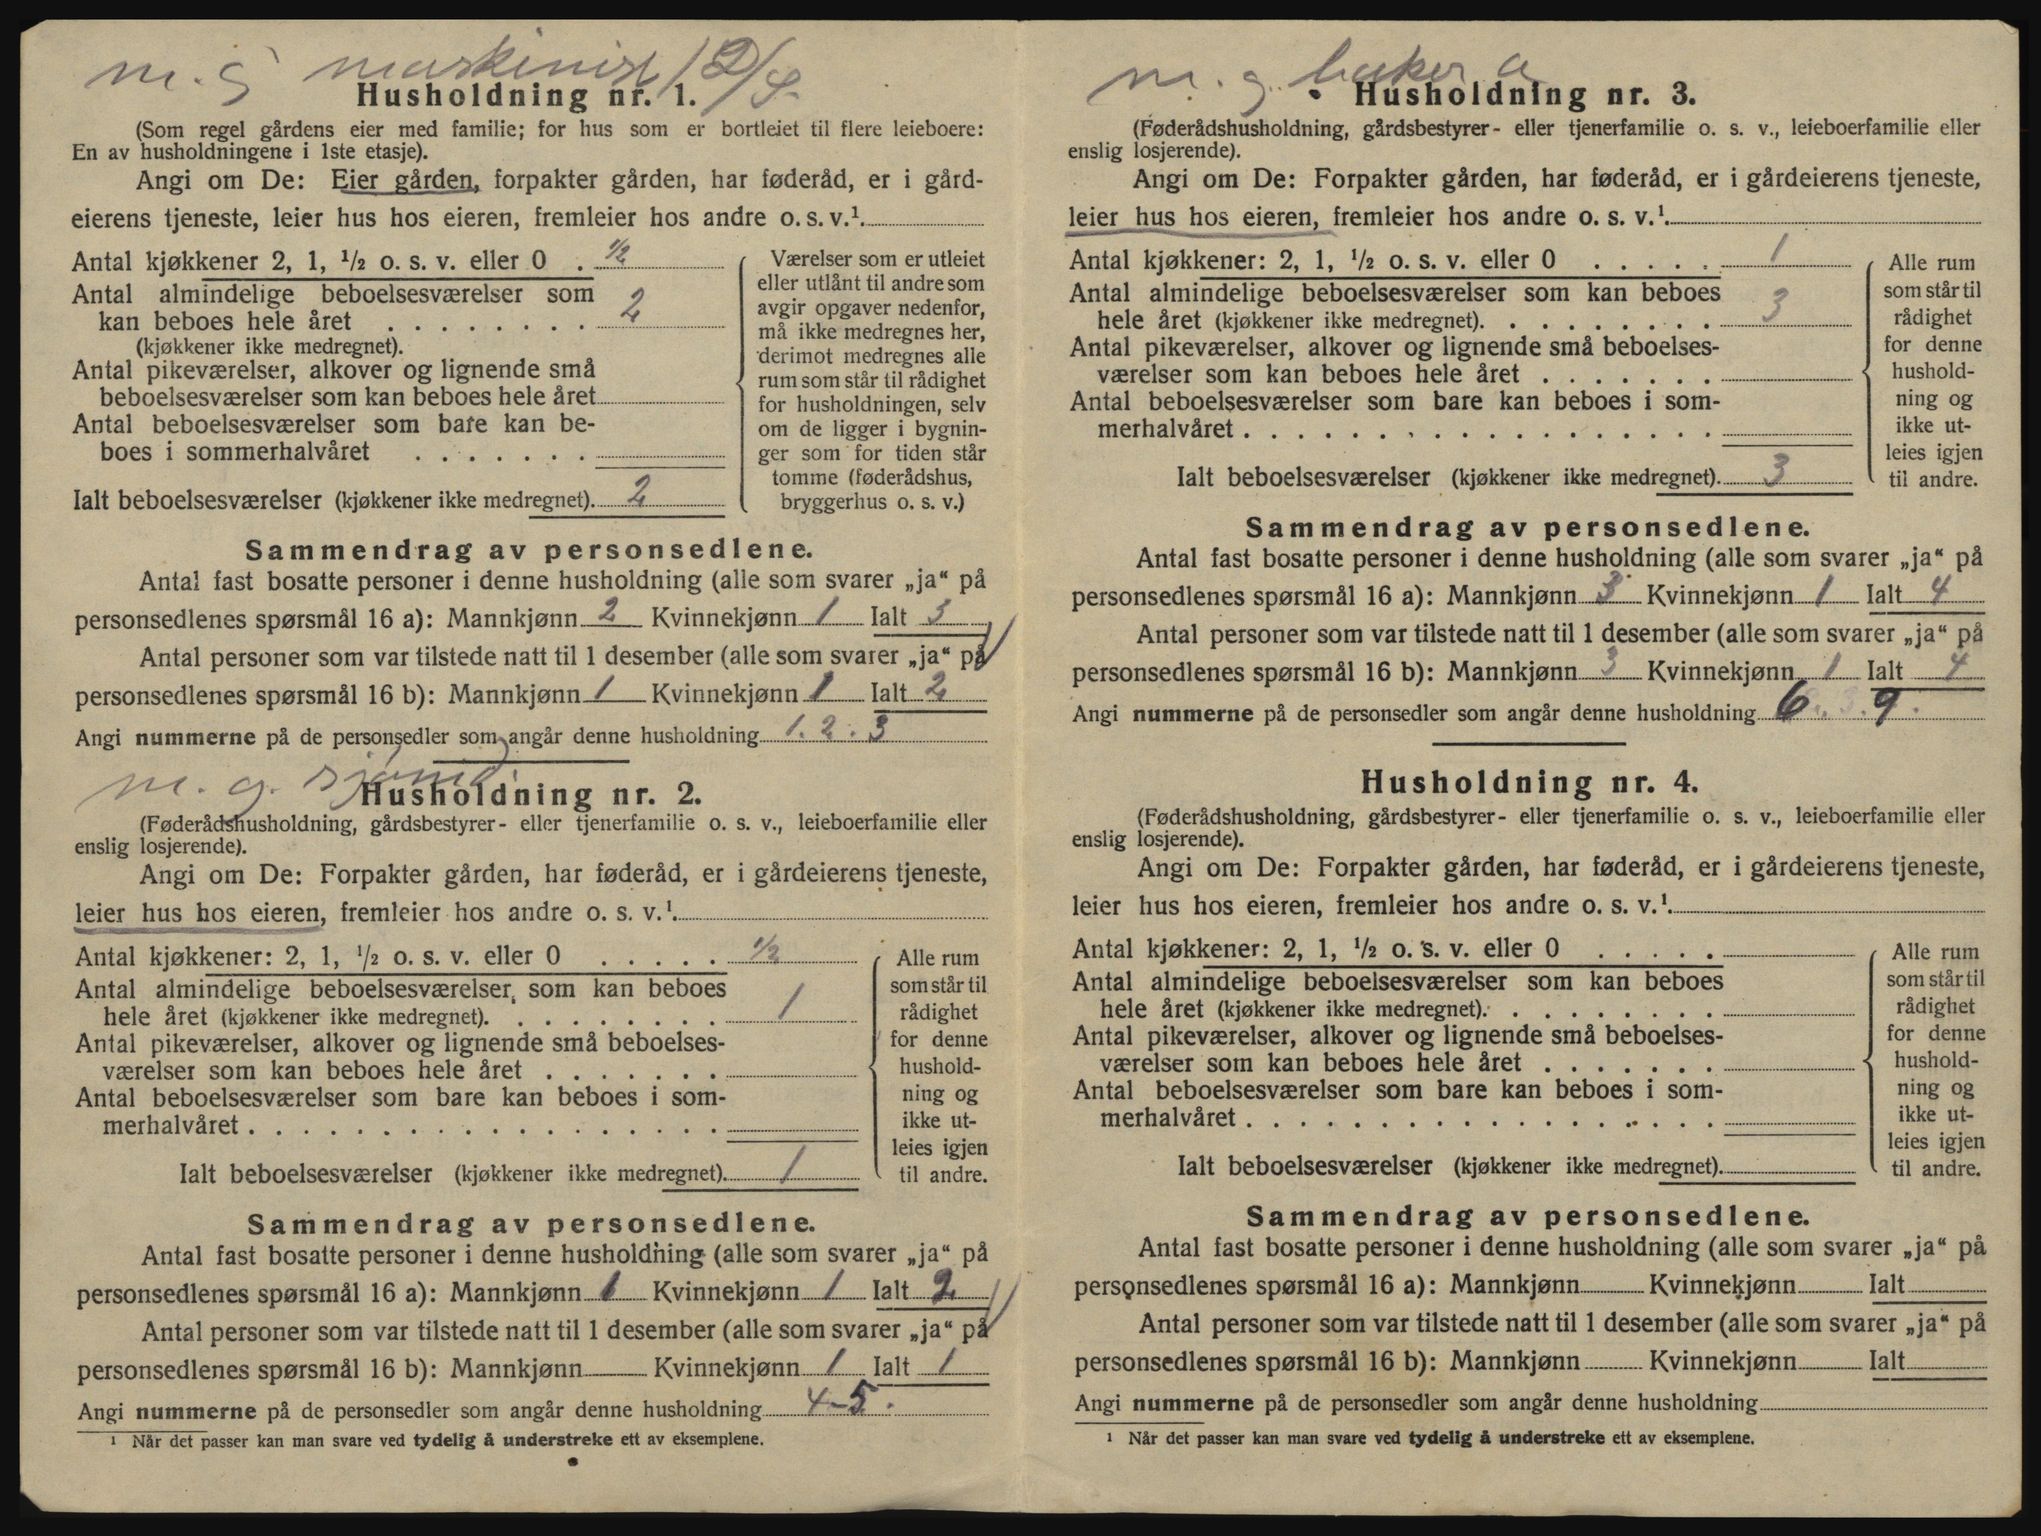 m. g maskinist
Husholdning nr. 1.
(Som regel gårdens eier med familie; for hus som er bortleiet til flere leieboere:
En av husholdningene i 1ste etasje).
Angi om De: Eier gården, forpakter gården, har føderåd, er i gård-
eierens tjeneste, leier hus hos eieren, fremleier hos andre o. s. v.¹.
Antal kjøkkener 2, 1, ½ o. s. v. eller 0 . ½
Antal almindelige beboelsesværelser som
kan beboes hele året . . . . . . . . . 2
(kjøkkener ikke medregnet).
Antal pikeværelser, alkover og lignende små
beboelsesværelser som kan beboes hele året
Antal beboelsesværelser som bare kan be-
boes i sommerhalvåret . . . . . . .
Ialt beboelsesværelser (kjøkkener ikke medregnet). 2
Værelser som er utleiet
eller utlånt til andre som
avgir opgaver nedenfor,
må ikke medregnes her,
derimot medregnes alle
rum som står til rådighet
for husholdningen, selv
om de ligger i bygnin-
ger som for tiden står
tomme (føderådshus,
bryggerhus o. s. v.)
Sammendrag av personsedlene.
Antal fast bosatte personer i denne husholdning (alle som svarer „ja“ på
personsedlenes spørsmål 16 a): Mannkjønn 2 Kvinnekjønn 1 Ialt 3
Antal personer som var tilstede natt til 1 desember (alle som svarer „ja“ på
personsedlenes spørsmål 16 b): Mannkjønn 1 Kvinnekjønn 1 Ialt 2
Angi nummerne på de personsedler som angår denne husholdning 1. 2. 3
m. g. sjømd
Husholdning nr. 2.
(Føderådshusholdning, gårdsbestyrer- eller tjenerfamilie o. s. v., leieboerfamilie eller
enslig losjerende).
Angi om De: Forpakter gården, har føderåd, er i gårdeierens tjeneste,
leier hus hos eieren, fremleier hos andre o. s. v.¹.
Antal kjøkkener: 2, 1, ½ o. s. v. eller 0 . . . . . ½
Antal almindelige beboelsesværelser som kan beboes
hele året (kjøkkener ikke medregnet). . . . . . . . . 1
Antal pikeværelser, alkover og lignende små beboelses-
værelser som kan beboes hele året . . . . . . .
Antal beboelsesværelser som bare kan beboes i som-
merhalvåret . . . . . . . . . . . . . . . . . .
Ialt beboelsesværelser (kjøkkener ikke medregnet). 1
Alle rum
som står til
rådighet
for denne
hushold-
ning og
ikke ut-
leies igjen
til andre.
Sammendrag av personsedlene.
Antal fast bosatte personer i denne husholdning (alle som svarer „ja“ på
personsedlenes spørsmål 16 a): Mannkjønn 1 Kvinnekjønn 1 Ialt 2
Antal personer som var tilstede natt til 1 desember (alle som svarer „ja“ på
personsedlenes spørsmål 16 b): Mannkjønn Kvinnekjønn 1 Ialt 1
Angi nummerne på de personsedler som angår denne husholdning 4-5.
¹ Når det passer kan man svare ved tydelig å understreke ett av eksemplene.
m. g. baker a
Husholdning nr. 3.
(Føderådshusholdning, gårdsbestyrer- eller tjenerfamilie o. s. v., leieboerfamilie eller
enslig losjerende).
Angi om De: Forpakter gården, har føderåd, er i gårdeierens tjeneste,
leier hus hos eieren, fremleier hos andre o. s. v.¹.
Antal kjøkkener: 2, 1, ½ o. s. v. eller 0 . . . . . 1
Antal almindelige beboelsesværelser som kan beboes
hele året (kjøkkener ikke medregnet). . . . . . . . . 3
Antal pikeværelser, alkover og lignende små beboelses-
værelser som kan beboes hele året . . . . . . .
Antal beboelsesværelser som bare kan beboes i som-
merhalvåret . . . . . . . . . . . . . . . . . .
Ialt beboelsesværelser (kjøkkener ikke medregnet). 3
Alle rum
som står til
rådighet
for denne
hushold-
ning og
ikke ut-
leies igjen
til andre.
Sammendrag av personsedlene.
Antal fast bosatte personer i denne husholdning (alle som svarer „ja“ på
personsedlenes spørsmål 16 a): Mannkjønn 3 Kvinnekjønn 1 Ialt 4
Antal personer som var tilstede natt til 1 desember (alle som svarer „ja“ på
personsedlenes spørsmål 16 b): Mannkjønn 3 Kvinnekjønn 1 Ialt 4
Angi nummerne på de personsedler som angår denne husholdning 6 9
Husholdning nr. 4.
(Føderådshusholdning, gårdsbestyrer- eller tjenerfamilie o. s. v., leieboerfamilie eller
enslig losjerende).
Angi om De: Forpakter gården, har føderåd, er i gårdeierens tjeneste,
leier hus hos eieren, fremleier hos andre o. s. v.¹.
Antal kjøkkener: 2, 1, ½ o. s. v. eller 0 . . . . .
Antal almindelige beboelsesværelser som kan beboes
hele året (kjøkkener ikke medregnet). . . . . . . . .
Antal pikeværelser, alkover og lignende små beboelses-
værelser som kan beboes hele året . . . . . . .
Antal beboelsesværelser som bare kan beboes i som-
merhalvåret . . . . . . . . . . . . . . . . . .
Ialt beboelsesværelser (kjøkkener ikke medregnet).
Alle rum
som står til
rådighet
for denne
hushold-
ning og
ikke ut-
leies igjen
til andre.
Sammendrag av personsedlene.
Antal fast bosatte personer i denne husholdning (alle som svarer „ja“ på
personsedlenes spørsmål 16 a): Mannkjønn Kvinnekjønn Ialt
Antal personer som var tilstede natt til 1 desember (alle som svarer „ja“ på
personsedlenes spørsmål 16 b): Mannkjønn Kvinnekjønn Ialt
Angi nummerne på de personsedler som angår denne husholdning
¹ Når det passer kan man svare ved tydelig å understreke ett av eksemplene.